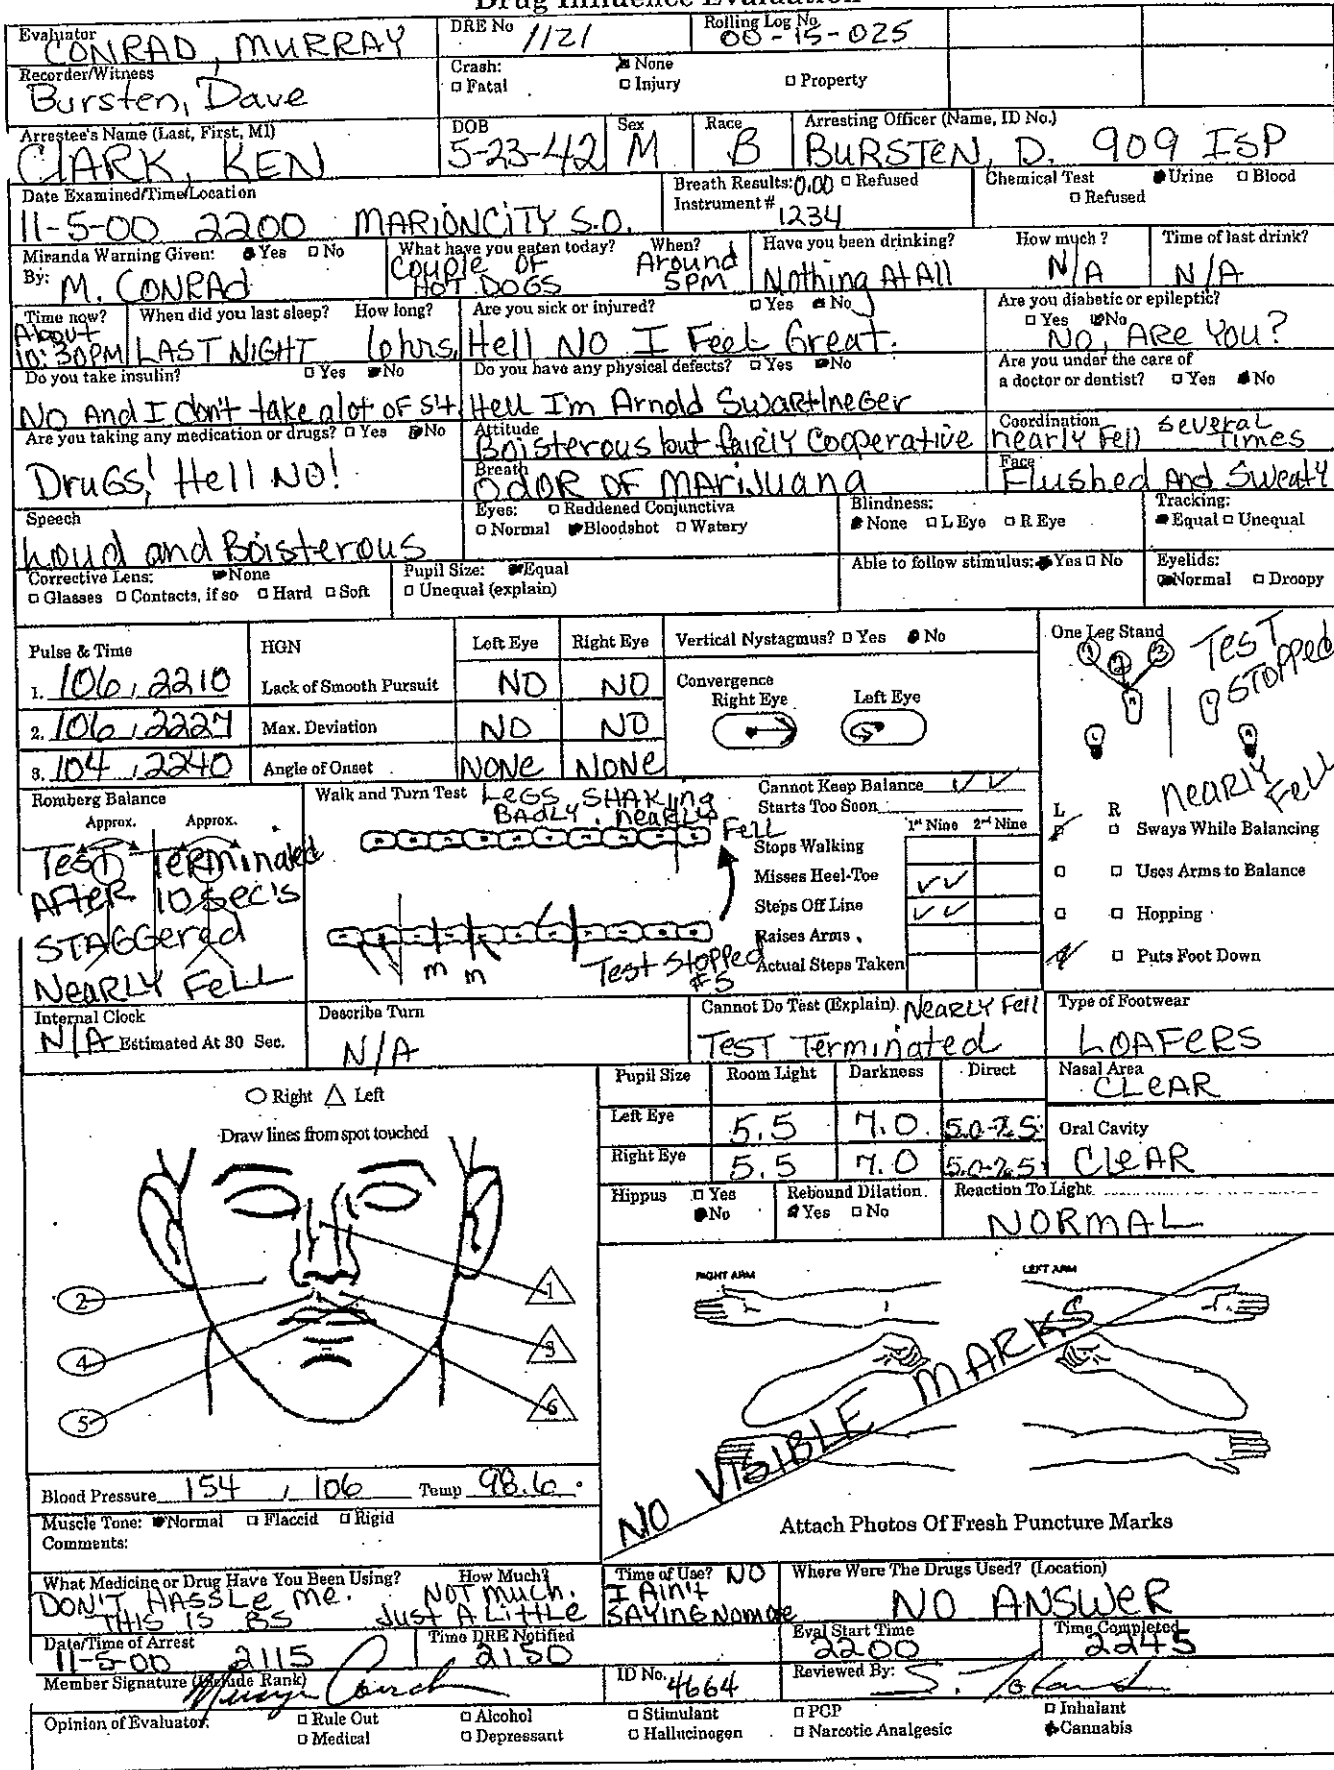 Drug Influence Evaluation
Evaluator CONRAD, MURRAY DRE No 1121 Rolling Log No. 00-15-025
Recorder/Witness Bursten, Dave Crash: None Fatal Injury Property
Arrestee's Name (Last, First, MI) CLARK, KEN DOB 5-23-42 Sex M Race B Arresting Officer (Name, ID No.) BURSTEN, D. 909 ISP
Date Examined/Time/Location 11-5-00 2200 MARIONCITY S.O. Breath Results: 0.00 Refused Instrument # 1234 Chemical Test Urine Blood Refused
Miranda Warning Given: Yes No By: M. CONRAd What have you eaten today? When? Couple OF HOT DOGS Around 5PM Have you been drinking? Nothing At All How much? N/A Time of last drink? N/A
Time now? About 10:30PM When did you last sleep? How long? LAST NIGHT 6hrs. Are you sick or injured? Yes No Hell NO I Feel Great. Are you diabetic or epileptic? Yes No NO, ARE YOU?
Do you take insulin? Yes No No And I don't take alot OF S4 Do you have any physical defects? Yes No Hell I'm Arnold Swartlneger Are you under the care of a doctor or dentist? Yes No
Are you taking any medication or drugs? Yes No DruGS! Hell NO! Attitude Boisterous but fairly Cooperative Coordination nearly Fell several Times
Breath OdOR OF MARiJuana Face Flushed And Sweaty
Speech Loud and Boisterous Eyes: Reddened Conjunctiva Normal Bloodshot Watery Blindness: None L Eye R Eye Tracking: Equal Unequal
Corrective Lens: None Glasses Contacts, if so Hard Soft Pupil Size: Equal Unequal (explain) Able to follow stimulus: Yes No Eyelids: Normal Droopy
Pulse & Time HGN Left Eye Right Eye Vertical Nystagmus? Yes No One Leg Stand
1. 106, 2210 Lack of Smooth Pursuit NO NO Convergence Right Eye Left Eye
2. 106, 2227 Max. Deviation NO NO
3. 104, 2240 Angle of Onset NONE NONE
1 2 3 TEST STOPPED
L R
NEARLY FELL
Romberg Balance Approx. Approx.
Test Terminated AFTER 10 Sec's STAGGered NeaRLY FeLL
Walk and Turn Test LEGS SHAKING BADLY. NEARLY FELL
M M
Test Stopped #5
Cannot Keep Balance ✓ ✓
Starts Too Soon
1st Nine 2nd Nine
Stops Walking
Misses Heel-Toe ✓✓
Steps Off Line ✓✓
Raises Arms
Actual Steps Taken
L R
Sways While Balancing
Uses Arms to Balance
Hopping
Puts Foot Down
Internal Clock N/A Estimated At 30 Sec. Describe Turn N/A Cannot Do Test (Explain) NEARLY Fell TEST Terminated Type of Footwear LOAFERS
Right Left
Draw lines from spot touched
2 4 5 1 3 6
Pupil Size Room Light Darkness Direct Nasal Area CLEAR
Left Eye 5.5 7.0 5.0-7.5 Oral Cavity
Right Eye 5.5 7.0 5.0-7.5 CleAR
Hippus Yes No Rebound Dilation Yes No Reaction To Light NORMAL
RIGHT ARM LEFT ARM
NO VISIBLE MARKS
Attach Photos Of Fresh Puncture Marks
Blood Pressure 154 / 106 Temp 98.6
Muscle Tone: Normal Flaccid Rigid
Comments:
What Medicine or Drug Have You Been Using? How Much? DON'T HASSLE me. THIS IS BS NOT much. Just A Little Time of Use? NO I Ain't SAYING NOMOE Where Were The Drugs Used? (Location) NO ANSWER
Date/Time of Arrest 11-5-00 2115 Time DRE Notified 2150 Eval Start Time 2200 Time Completed 2245
Member Signature (Include Rank) ID No. 4664 Reviewed By:
Opinion of Evaluator: Rule Out Medical Alcohol Depressant Stimulant Hallucinogen PCP Narcotic Analgesic Inhalant Cannabis